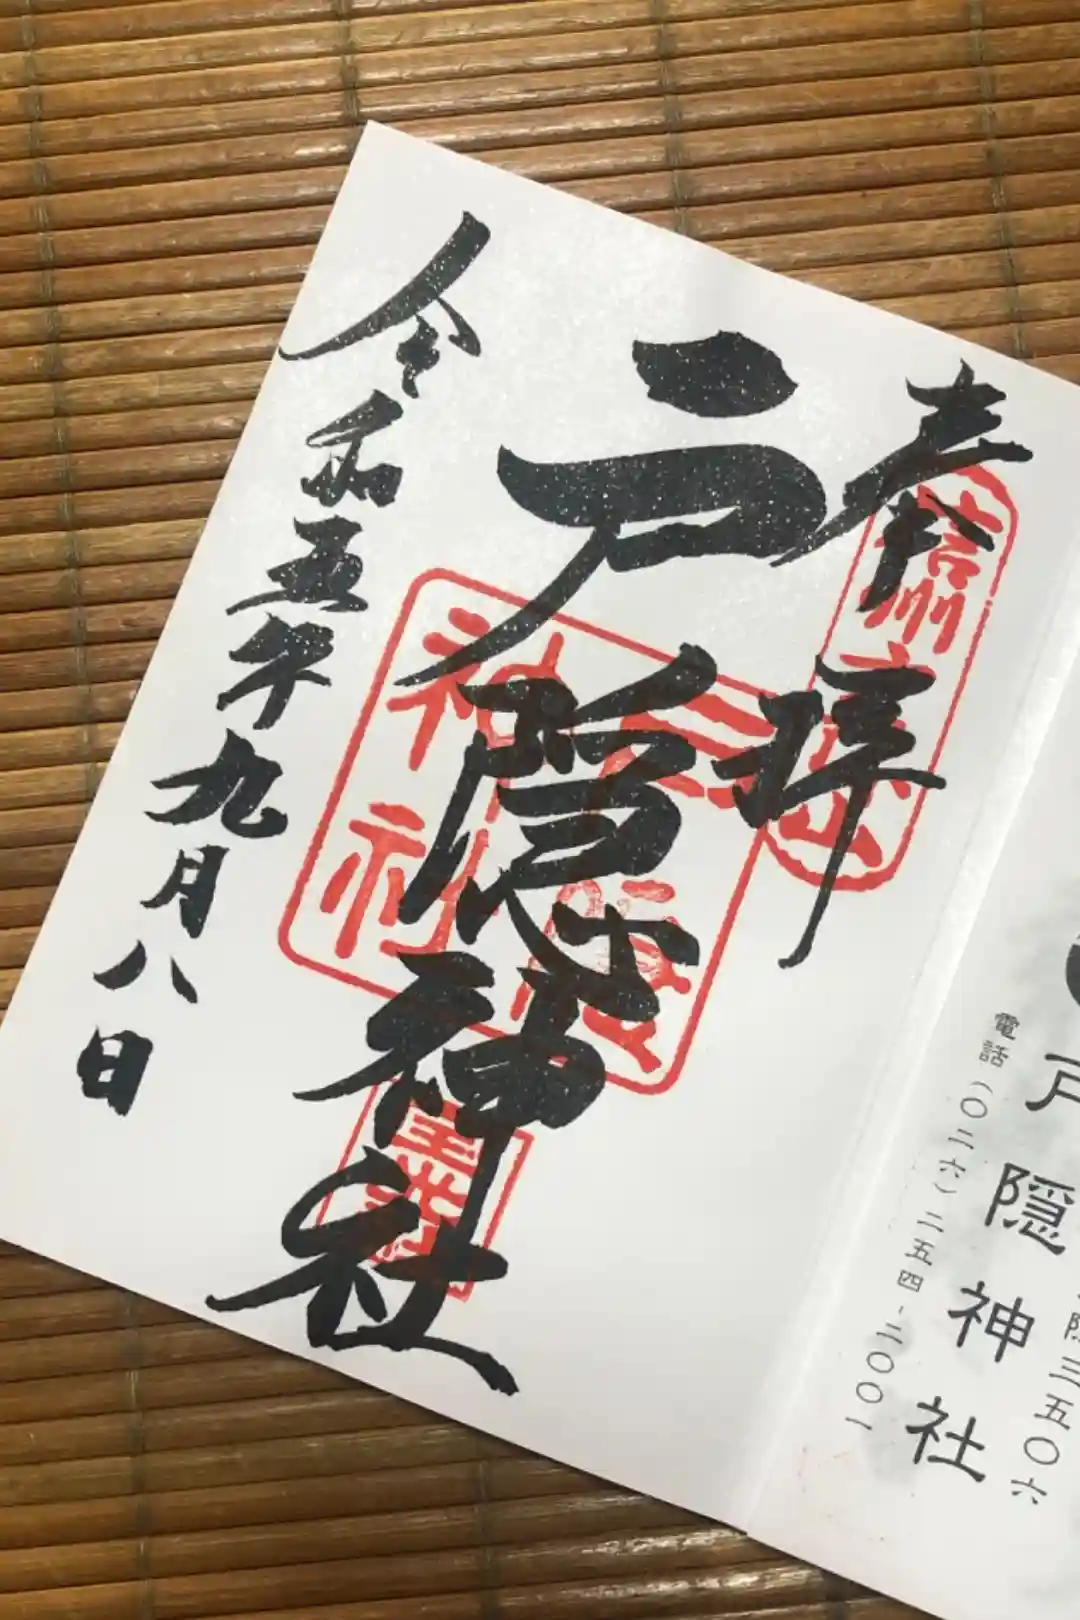 隠三五〇六
戸隠神社
電話(〇二六)二五四-二〇〇一
奉拝
信州戸隠山
戸隠神社
神社
令和五年九月八日